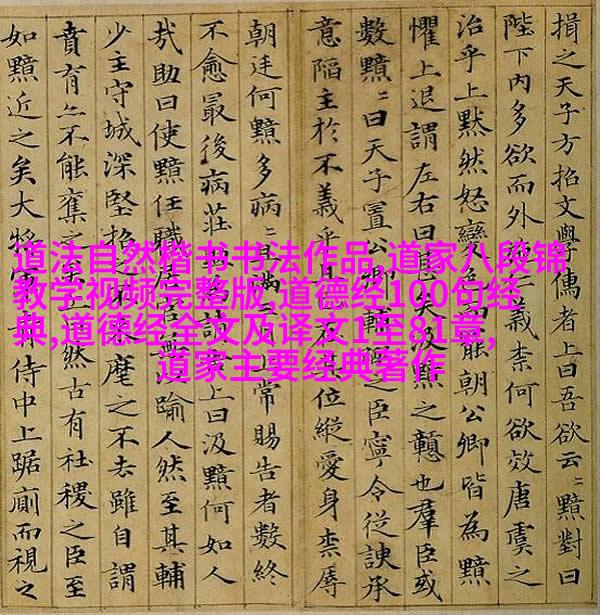 道法自然楷书书法作品,道家八段锦
教学视频完整版,道德经100句经
典,道德经全文及译文1至81章,
道家主要经典著作
揖之天子方招文學儒者上曰吾欲云〻黯對曰
陛下内多欲而外義柰何欲效唐虞之
治乎上黙然怒變罷朝公卿皆為黯
懼上退謂左右曰矣汲黯之戇也羣臣或
數黯〻曰天子置公卿輔之臣寧令從諛承
意陷主於不義乎位縱愛身柰辱
朝廷何黯多病〻滿上常賜告者數終
不愈最後病莊上曰汲黯何如人
哉助曰使黯任職踰人然至其輔
少主守城深堅招之麾之不去雖自謂
賁育亦不能奪之然古有社稷之臣至
如黯近之矣大將侍中上踞廁而視之